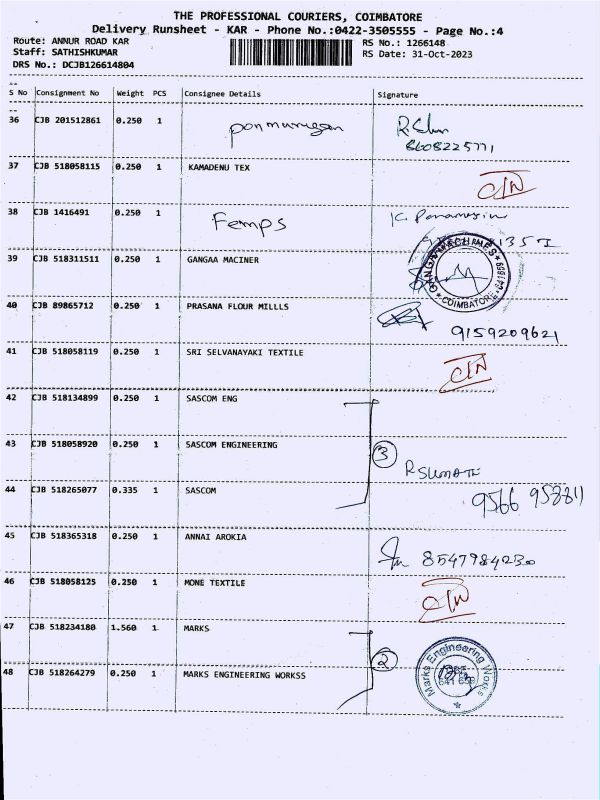 THE PROFESSIONAL COURIERS, COIMBATORE
Delivery Runsheet - KAR - Phone No.:0422-3505555 - Page No.:4
Route: ANNUR ROAD KAR
RS No.: 1266148
Staff: SATHISHKUMAR
RS Date: 31-Oct-2023
DRS No.: DCJB126614804
S No Consignment No Weight PCS Consignee Details Signature
36 CJB 201512861 0.250 1 ponmurugan
8608225771
37 CJB 518058115 0.250 1 KAMADENU TEX
38 CJB 1416491 0.250 1 Femps
39 CJB 518311511 0.250 1 GANGAA MACINER
COIMBATORE
40 CJB 89865712 0.250 1 PRASANA FLOUR MILLLS
9159209621
41 CJB 518058119 0.250 1 SRI SELVANAYAKI TEXTILE
42 CJB 518134899 0.250 1 SASCOM ENG
43 CJB 518058920 0.250 1 SASCOM ENGINEERING
3
44 CJB 518265077 0.335 1 SASCOM
45 CJB 518365318 0.250 1 ANNAI AROKIA
8547984230
46 CJB 518058125 0.250 1 MONE TEXTILE
47 CJB 518234180 1.560 1 MARKS
2
Marks Engineering Works
48 CJB 518264279 0.250 1 MARKS ENGINEERING WORKSS